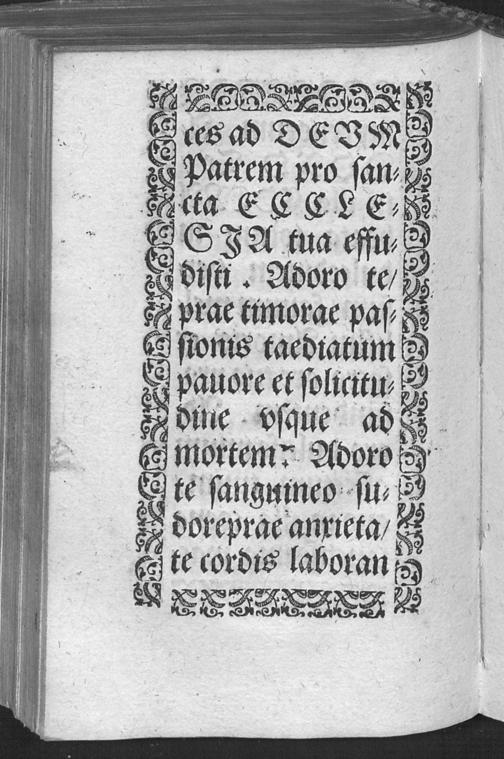 ces ad DEVM
Patrem pro san-
cta ECCLE-
SIA tua effu-
disti . Adoro te/
prae timorae pas-
sionis taediatum
pauore et solicitu-
dine vsque ad
mortem: Adoro
te sanguineo su-
doreprae anxieta/
te cordis laboran